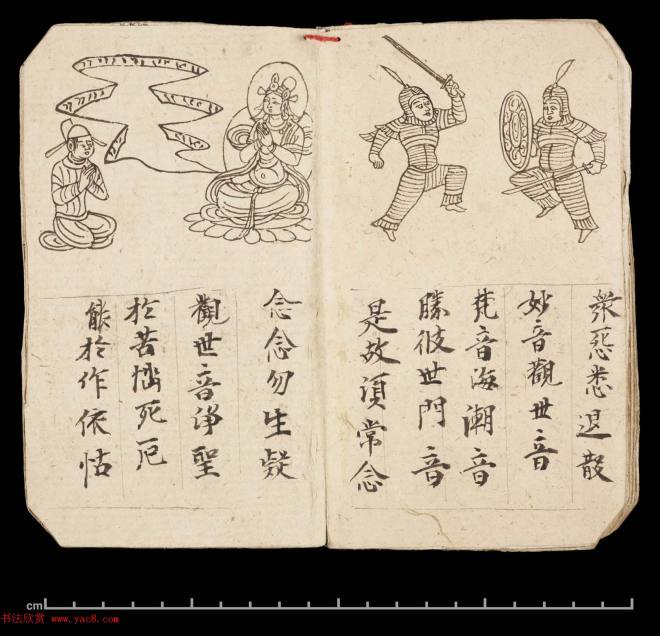 衆惡悉退散
妙音觀世音
梵音海潮音
勝彼世門音
是故湏常念
念念勿生疑
觀世音淨聖
於苦惱死厄
能於作依怙
cm
书法欣赏 www.yac8.com